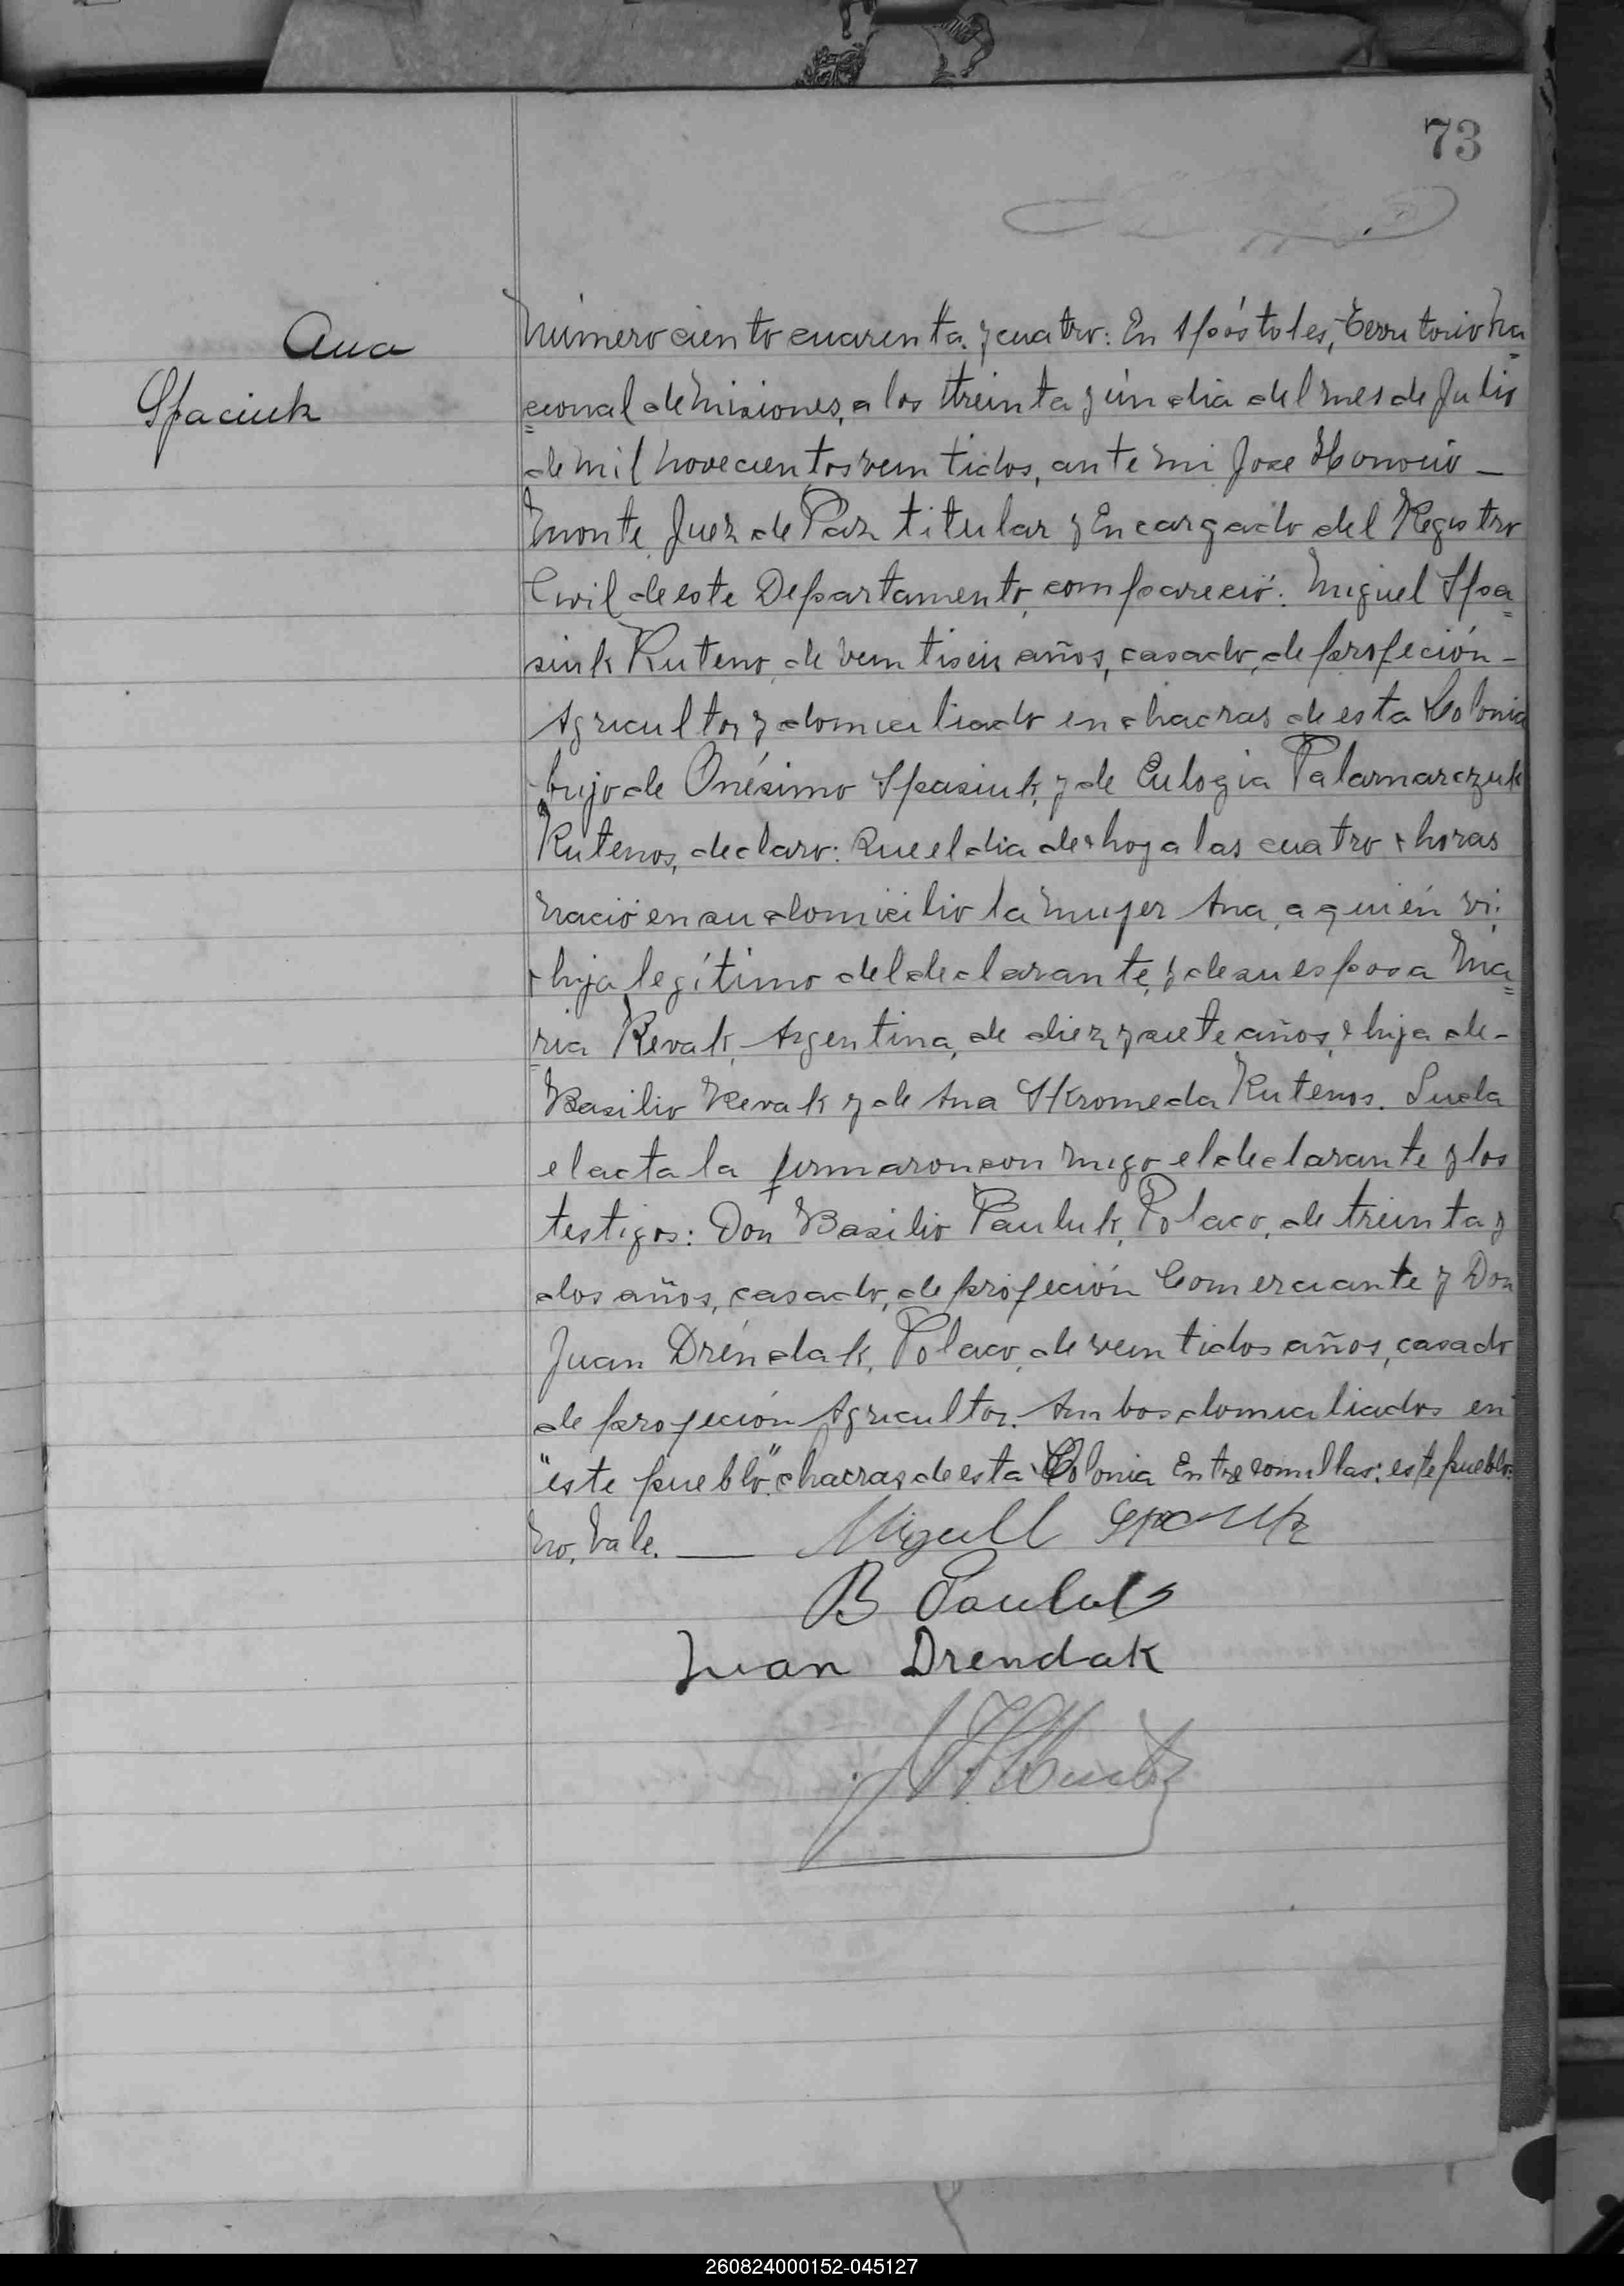 73
Ana
Spaciuk
Número ciento cuarenta y cuatro: En Apóstoles, Territorio Na=
=cional de Misiones, a los treinta y ún dia del mes de Julio
de mil novecientos veintidos, ante mi Jose Honorio —
Monte Juez de Paz titular y Encargado del Registro
Civil de este Departamento, compareció: Miguel Spa=
siuk Ruteno, de veintiseis años, casado, de profeción -
Agricultor y domiciliado en chacras de esta Colonia
hijo de Onésimo Spasiuk, y de Eulogia Palamarczuk
Rutenos, declaro: Que el dia de hoy a las cuatro horas
nació en su domicilio la mujer Ana, a quién vi;
hija legítimo del declarante, y de su esposa Ma=
=ria Revak, Argentina, de diez y siete años, hija de -
Basilio Revak y de Ana Skromeda Rutenos. Leida
el acta la firmaron con migo el declarante y los
testigos: Don Basilio Pauluk, Polaco, de treinta y
dos años, casado, de profeción Comerciante y Don
Juan Dréndak, Polaco, de veintidos años, casado
de profeción Agricultor. Ambos domiciliados en
"este pueblo" chacras de esta Colonia Entre comillas: este pueblo:
No, Vale. — Miguell
B Pauluk
Juan Drendak
260824000152-045127